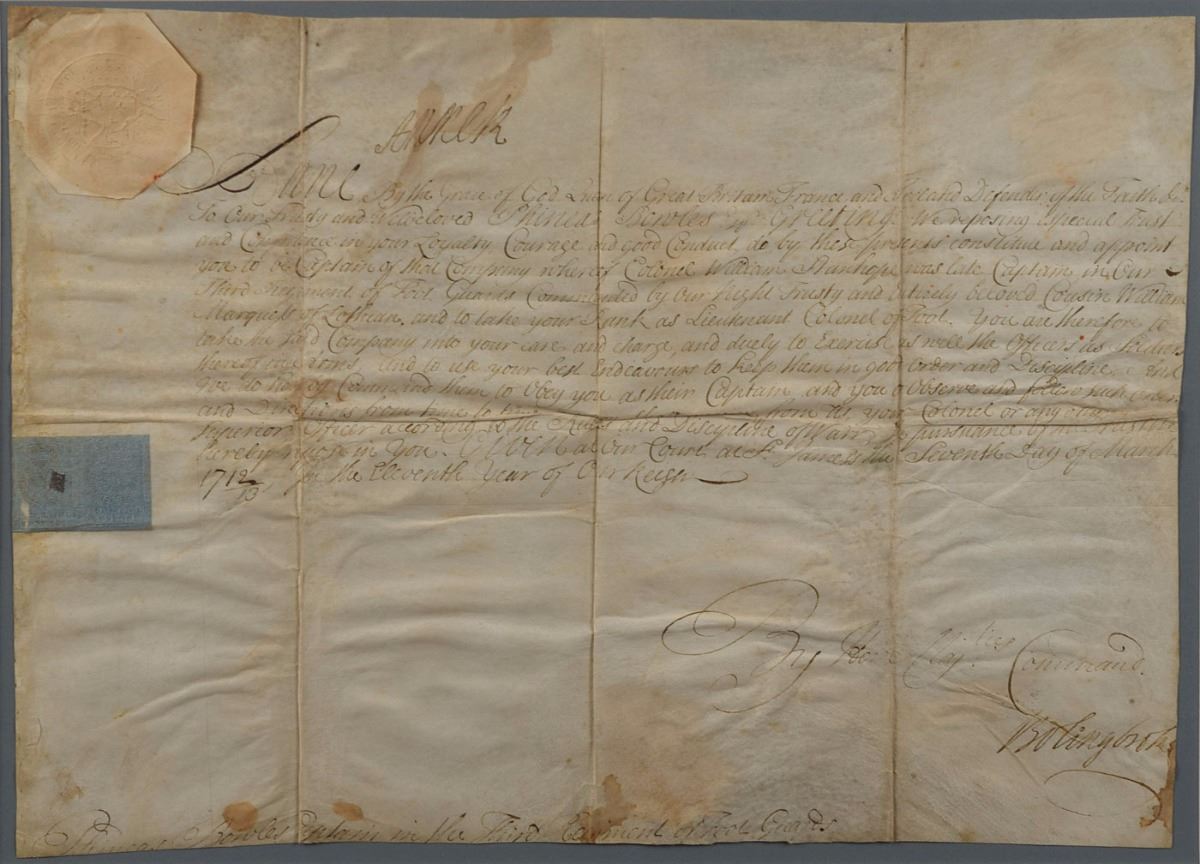 Anne R
Anne By the Grace of God Queen of Great Britain France and Ireland Defender of the Faith &c.
To Our Trusty and Welbeloved Phineas Bowles Greeting. We reposing especial Trust
and Confidence in your Loyalty Courage and good Conduct do by these presents constitute and appoint
you to be Captain of that Company whereof Colonel William Stanhope was late Captain in Our
Third Regiment of Foot Guards Commanded by Our Right Trusty and entirely beloved Cousin William
Marquess of Lothian, and to take your Rank as Lieutenant Colonel of Foot. You are therefore to
take the said Company into your care and charge, and duely to Exercise as well the Officers as Soldiers
thereof in Arms, and to use your best Endeavours to keep them in good Order and Discipline. And
We do hereby Command them to Obey you as their Captain, and you to Observe and follow such Orders
and Directions from time to time from Us, your Colonel or any other
superior Officer according to the Rules and Discipline of War in pursuance of the Trust We
hereby repose in You. Given at Our Court at St. James's the Seventh Day of March
1712/13 In the Eleventh Year of Our Reign
By Her Majties Command.
Bolingbroke
Phineas Bowles Captain in the Third Regiment of Foot Guards